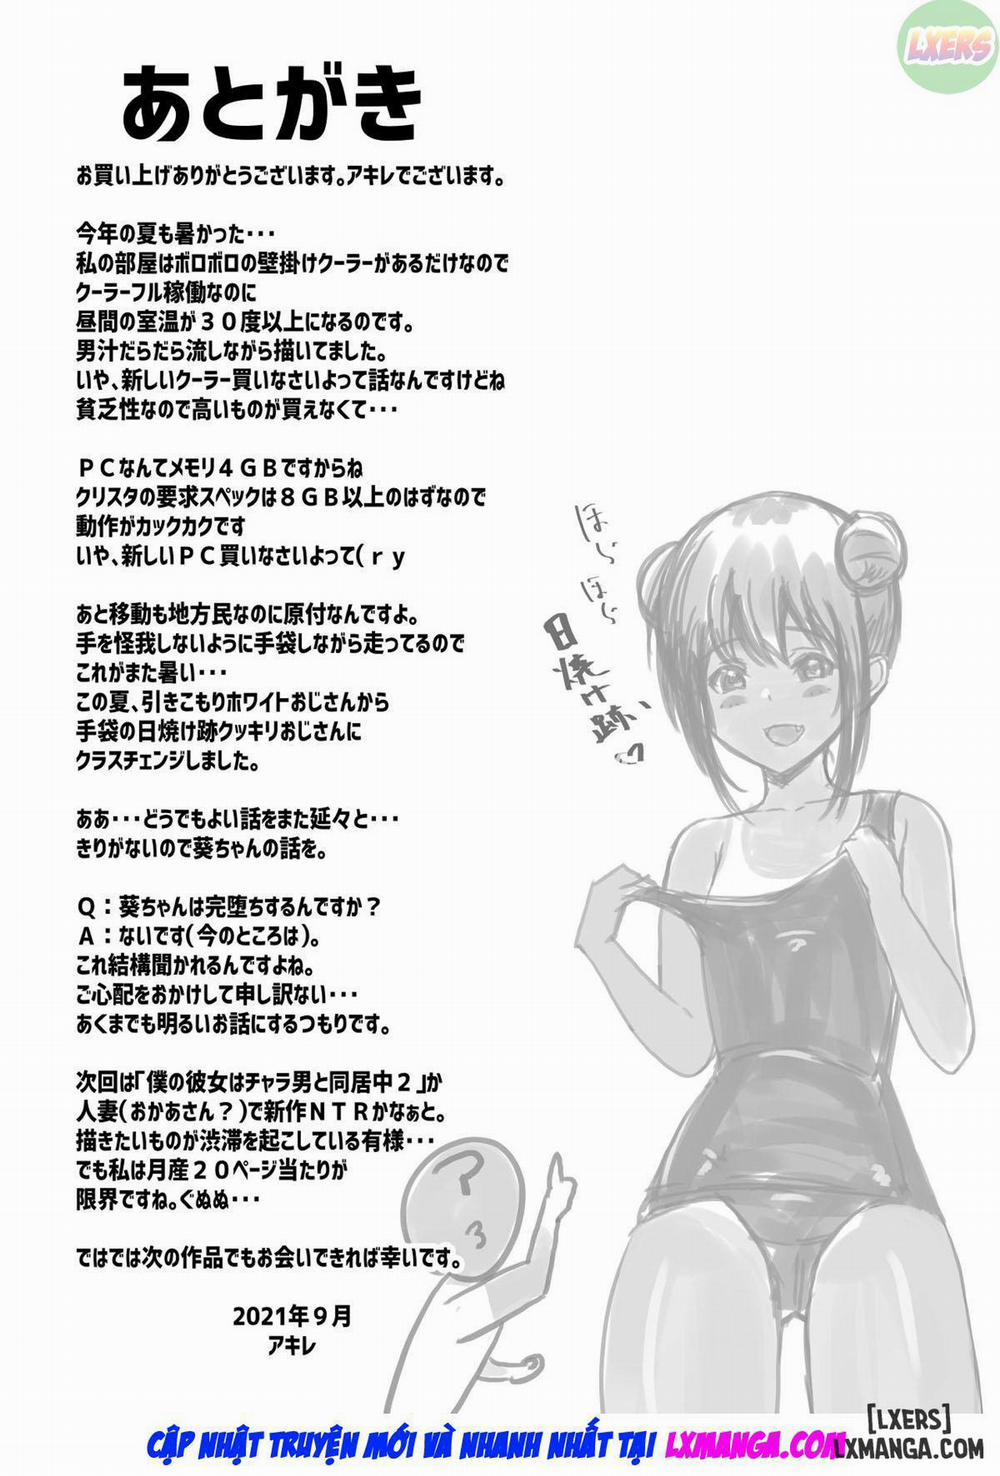 LXERS
あとがき
お買い上げありがとうございます。アキレでございます。
今年の夏も暑かった･･･
私の部屋はボロボロの壁掛けクーラーがあるだけなので
クーラーフル稼働なのに
昼間の室温が３０度以上になるのです。
男汁だらだら流しながら描いてました。
いや、新しいクーラー買いなさいよって話なんですけどね
貧乏性なので高いものが買えなくて･･･
ＰＣなんてメモリ４ＧＢですからね
クリスタの要求スペックは８ＧＢ以上のはずなので
動作がカックカクです
いや、新しいＰＣ買いなさいよって(ｒｙ
あと移動も地方民なのに原付なんですよ。
手を怪我しないように手袋しながら走ってるので
これがまた暑い･･･
この夏、引きこもりホワイトおじさんから
手袋の日焼け跡クッキリおじさんに
クラスチェンジしました。
ああ･･･どうでもよい話をまた延々と･･･
きりがないので葵ちゃんの話を。
Ｑ：葵ちゃんは完堕ちするんですか？
Ａ：ないです(今のところは)。
これ結構聞かれるんですよね。
ご心配をおかけして申し訳ない･･･
あくまでも明るいお話にするつもりです。
次回は｢僕の彼女はチャラ男と同居中２｣か
人妻(おかあさん？)で新作ＮＴＲかなぁと。
描きたいものが渋滞を起こしている有様･･･
でも私は月産２０ページ当たりが
限界ですね。ぐぬぬ･･･
ではでは次の作品でもお会いできれば幸いです。
2021年９月
アキレ
ほら
ほら
日焼け跡♡
ア
3
[LXERS]
CẬP NHẬT TRUYỆN MỚI VÀ NHANH NHẤT TẠI LXMANGA.COM
LXMANGA.COM